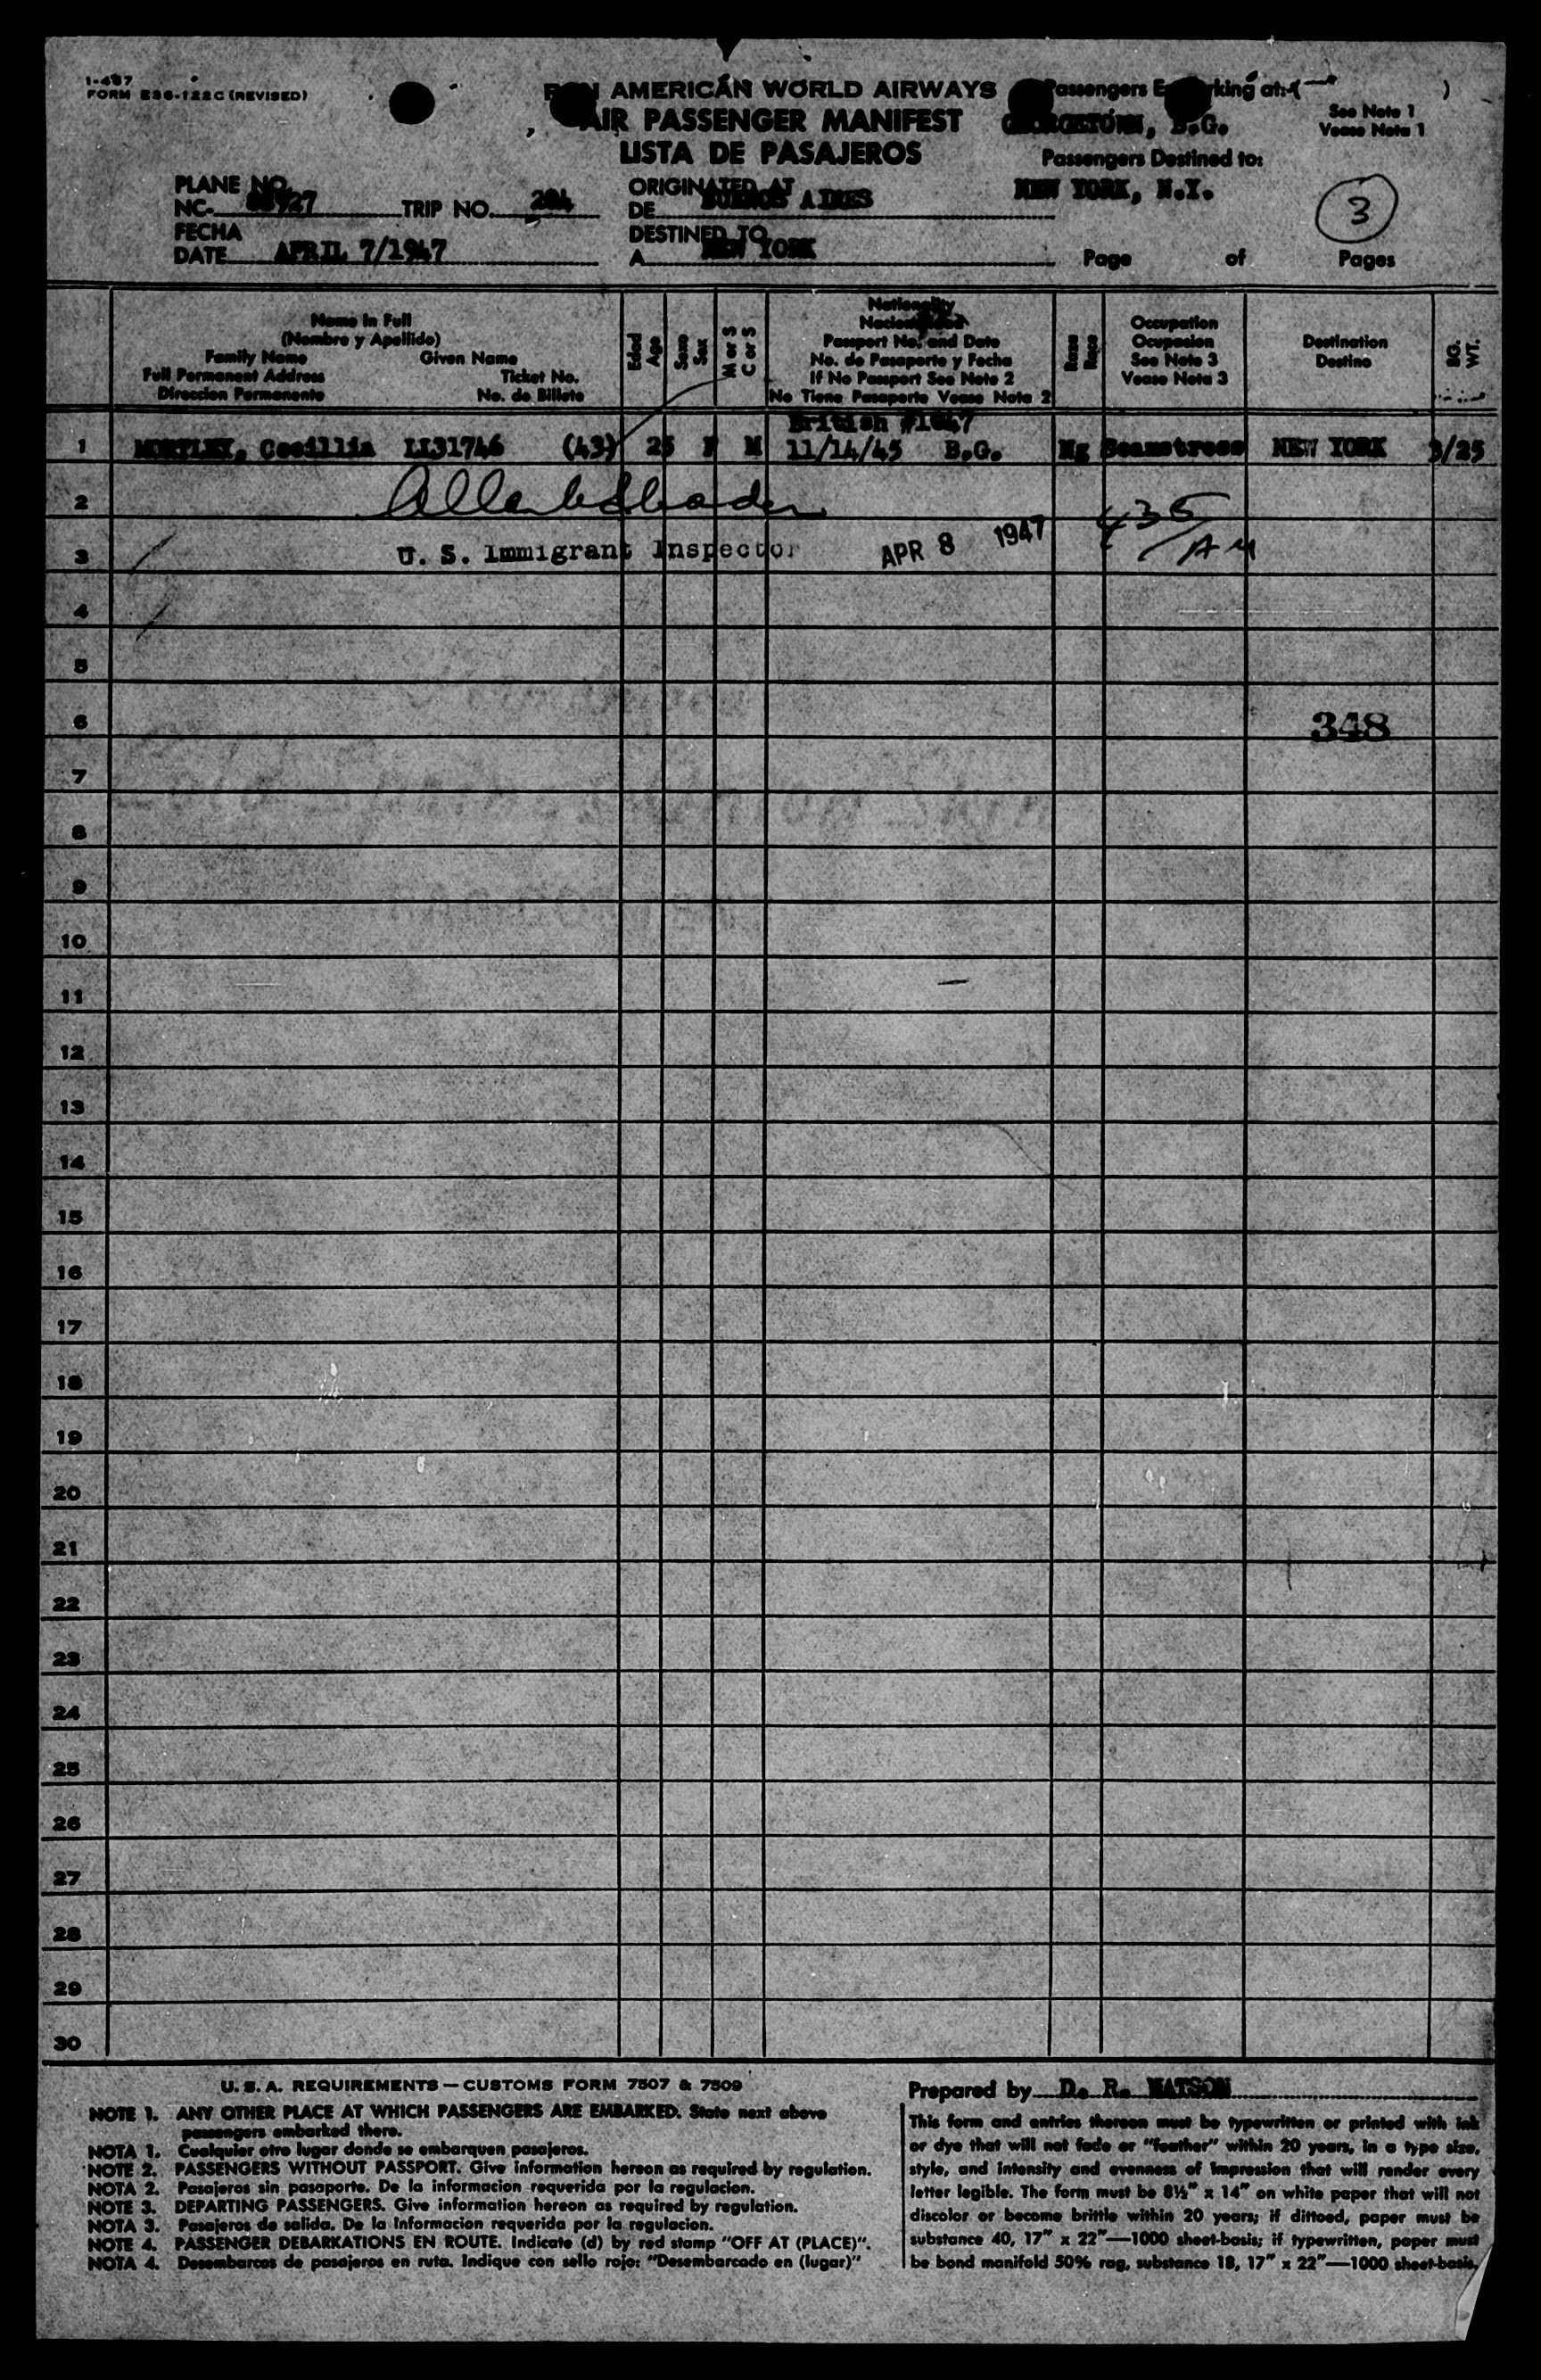 I-487
FORM E36-122C (REVISED)
AMERICAN WORLD AIRWAYS
AIR PASSENGER MANIFEST
LISTA DE PASAJEROS
Passengers E rking at:( )
GEORGETOWN, B.G.
See Note 1
Vease Nota 1
Passengers Destined to:
NEW YORK, N.Y.
PLANE NO.
NC- 927 TRIP NO. 204
FECHA
DATE APRIL 7/1947
ORIGINATED AT
DE BUENOS AIRES
DESTINED TO
A NEW YORK
3
Page of Pages
Name in Full
(Nombre y Apellido)
Family Name Given Name
Full Permanent Address Ticket No.
Direccion Permanente No. de Billete
Edad
Age
Sexo
Sex
M or S
C or S
Nationality
Nacionalidad
Passport No. and Date
No. de Pasaporte y Fecha
If No Passport See Note 2
No Tiene Pasaporte Vease Nota 2
Raza
Race
Occupation
Ocupasion
See Note 3
Vease Nota 3
Destination
Destino
BG.
WT.
British #1047
1 Cecillia LL31746 (43) 25 F M 11/14/45 B.G. Ng Seamstress NEW YORK 3/25
2
435
AM
3 U. S. Immigrant Inspector APR 8 1947
4
5
6 348
7
8
9
10
11
12
13
14
15
16
17
18
19
20
21
22
23
24
25
26
27
28
29
30
U. S. A. REQUIREMENTS — CUSTOMS FORM 7507 & 7509
NOTE 1. ANY OTHER PLACE AT WHICH PASSENGERS ARE EMBARKED. State next above
passengers embarked there.
NOTA 1. Cualquier otro lugar donde se embarquen pasajeros.
NOTE 2. PASSENGERS WITHOUT PASSPORT. Give information hereon as required by regulation.
NOTA 2. Pasajeros sin pasaporte. De la informacion requerida por la regulacion.
NOTE 3. DEPARTING PASSENGERS. Give information hereon as required by regulation.
NOTA 3. Pasajeros de salida. De la informacion requerida por la regulacion.
NOTE 4. PASSENGER DEBARKATIONS EN ROUTE. Indicate (d) by red stamp "OFF AT (PLACE)".
NOTA 4. Desembarcos de pasajeros en ruta. Indique con sello rojo: "Desembarcado en (lugar)"
Prepared by D. R. WATSON
This form and entries thereon must be typewritten or printed with ink
or dye that will not fade or "feather" within 20 years, in a type size,
style, and intensity and evenness of impression that will render every
letter legible. The form must be 8½" x 14" on white paper that will not
discolor or become brittle within 20 years; if dittoed, paper must be
substance 40, 17" x 22"—1000 sheet-basis; if typewritten, paper must
be bond manifold 50% rag, substance 18, 17" x 22"—1000 sheet-basis.